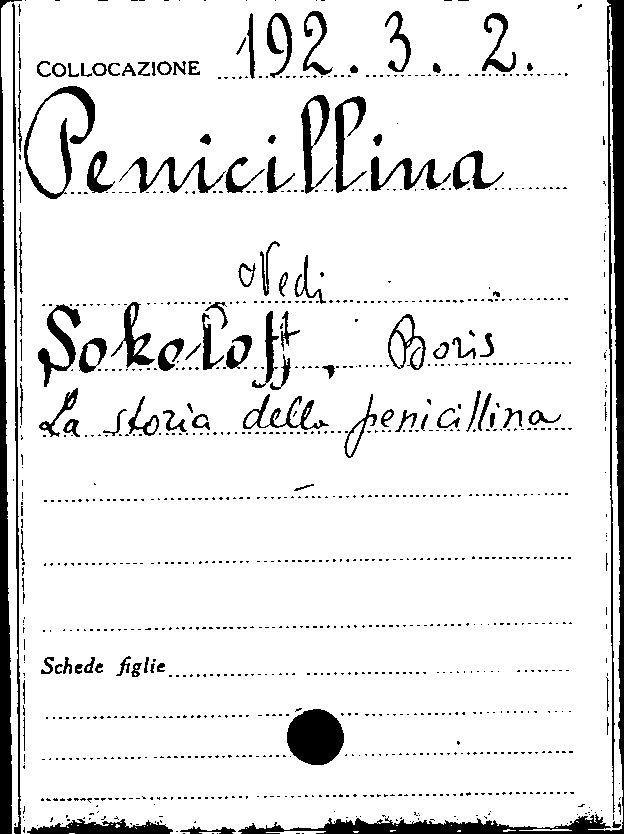 COLLOCAZIONE 192.3.2.
Penicillina
Vedi
Sokoloff, Boris
La storia della penicillina
Schede figlie